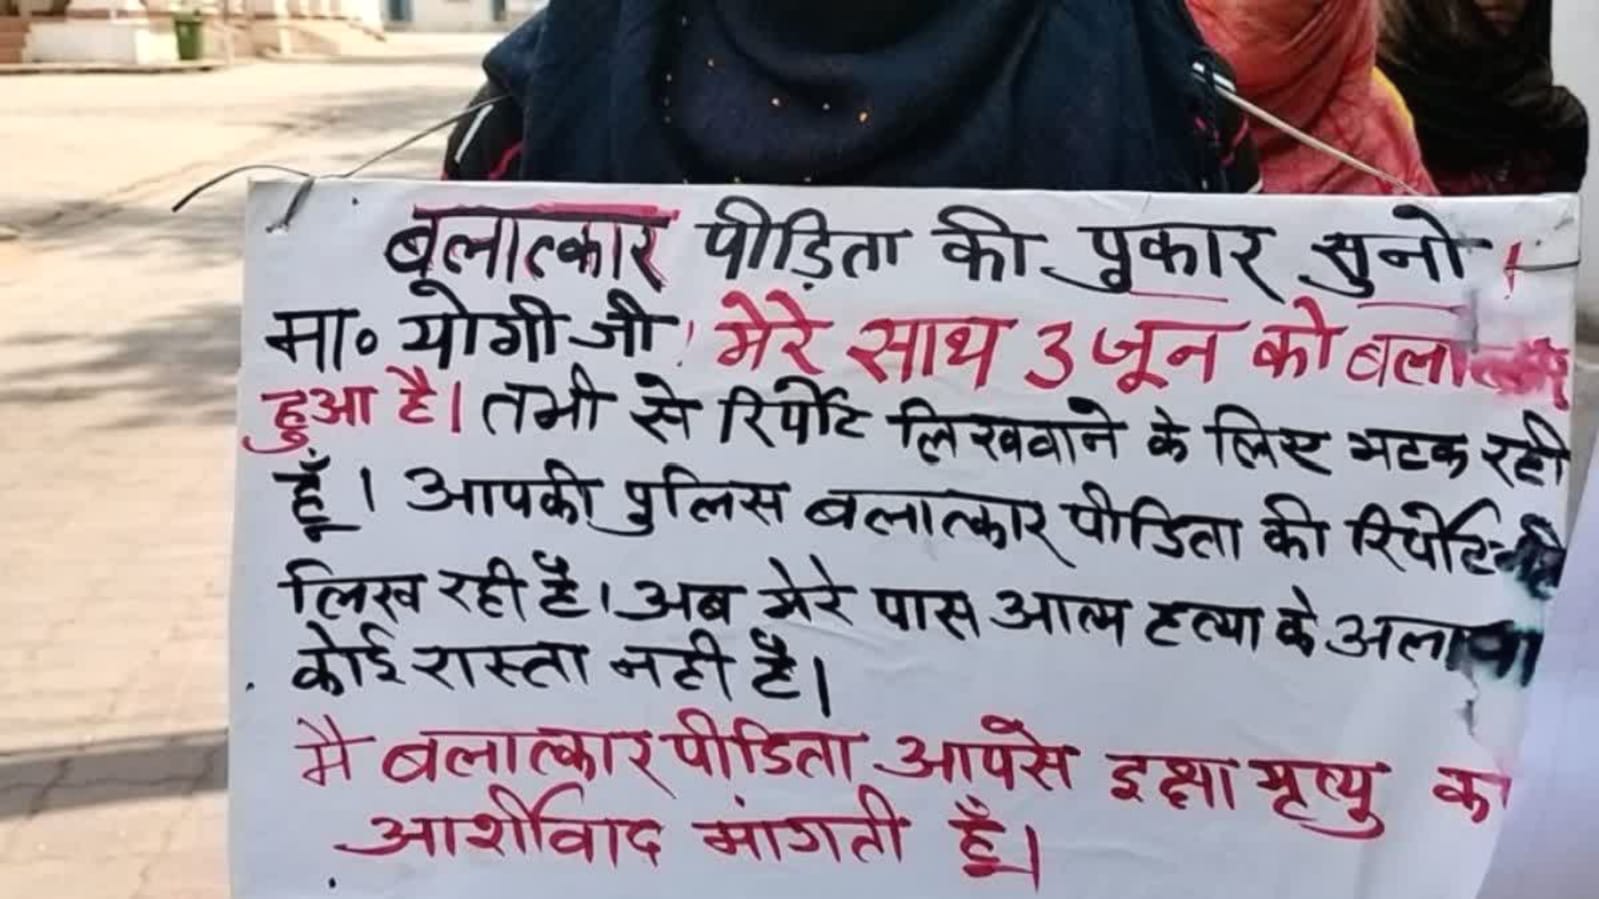 बलात्कार पीड़िता की पूकार सुनो!
मा० योगी जी! मेरे साथ 3 जून को
हुआ है। तभी से रिर्पोट लिखवाने के लिए भटक रही
हूँ। आपकी पुलिस बलात्कार पीडिता की रिर्पोट
लिख रही है। अब मेरे पास आत्म हत्या के अलावा
कोई रास्ता नही है।
मै बलात्कार पीडिता आपसे इक्षा मृत्यु का
आर्शीवाद मांगती हूँ।